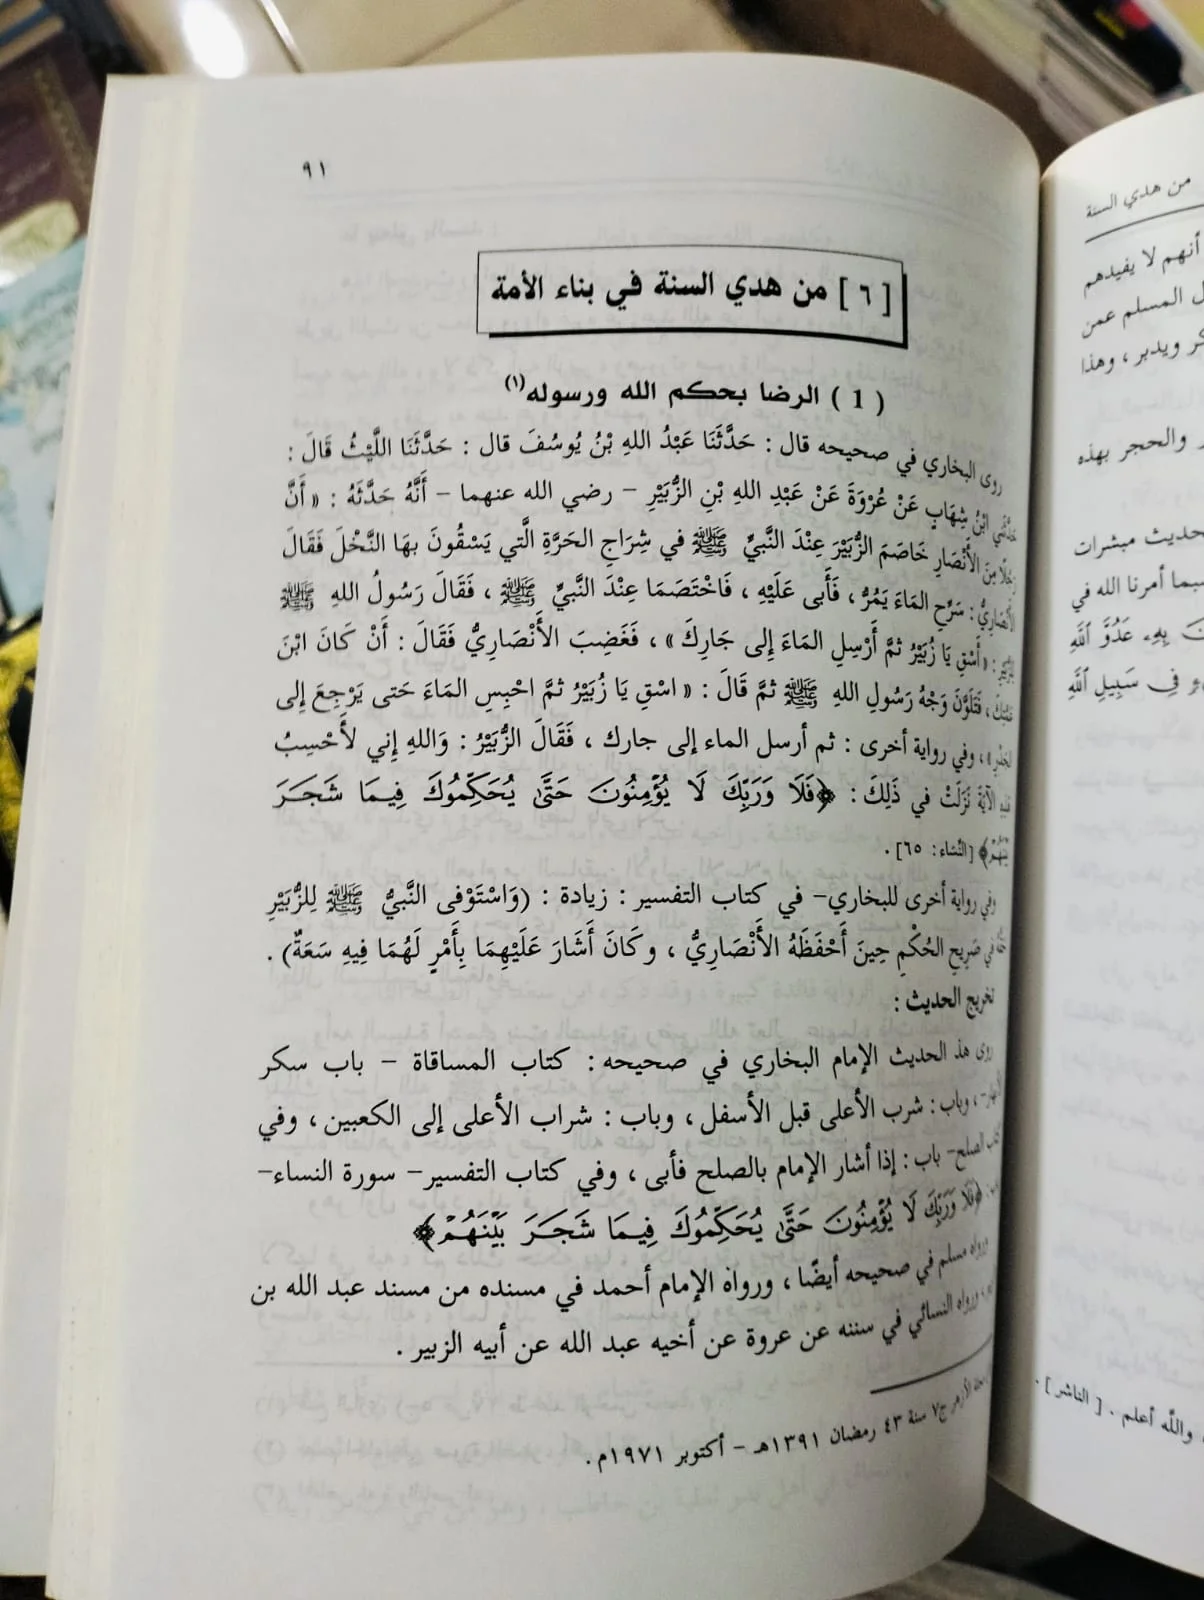 ٩١
[ ٦ ] من هدي السنة في بناء الأمة
( 1 ) الرضا بحكم الله ورسوله(١)
روى البخاري في صحيحه قال : حَدَّثَنَا عَبْدُ اللهِ بْنُ يُوسُفَ قال : حَدَّثَنَا اللَّيْثُ قَالَ :
ابْنُ شِهَابٍ عَنْ عُرْوَةَ عَنْ عَبْدِ اللهِ بْنِ الزُّبَيْرِ – رضي الله عنهما – أَنَّهُ حَدَّثَهُ : « أَنَّ
رَجُلًا مِنَ الأَنْصَارِ خَاصَمَ الزُّبَيْرَ عِنْدَ النَّبِيِّ ﷺ في شِرَاجِ الحَرَّةِ الَّتي يَسْقُونَ بِهَا النَّخْلَ فَقَالَ
الأَنْصَارِيُّ : سَرِّحِ المَاءَ يَمُرُّ ، فَأَبى عَلَيْهِ ، فَاخْتَصَمَا عِنْدَ النَّبيِّ ﷺ ، فَقَالَ رَسُولُ اللهِ ﷺ
: « أَسْقِ يَا زُبَيْرُ ثمَّ أَرْسِلِ المَاءَ إِلى جَارِكَ » ، فَغَضِبَ الأَنْصَارِيُّ فَقَالَ : أَنْ كَانَ ابْنَ
، فَتَلَوَّنَ وَجْهُ رَسُولِ اللهِ ﷺ ثمَّ قَالَ : « اسْقِ يَا زُبَيْرُ ثمَّ احْبِسِ المَاءَ حَتى يَرْجِعَ إِلى
» ، وفي رواية أخرى : ثم أرسل الماء إلى جارك ، فَقَالَ الزُّبَيْرُ : وَاللهِ إِني لأَحْسِبُ
الآيَةَ نَزَلَتْ في ذَلِكَ : ﴿فَلَا وَرَبِّكَ لَا يُؤْمِنُونَ حَتَّىٰ يُحَكِّمُوكَ فِيمَا شَجَرَ
بَيْنَهُمْ﴾ [النساء: ٦٥] .
وفي رواية أخرى للبخاري– في كتاب التفسير : زيادة : (وَاسْتَوْفى النَّبيُّ ﷺ لِلزُّبَيْرِ
في صَرِيحِ الحُكْمِ حِينَ أَحْفَظَهُ الأَنْصَارِيُّ ، وكَانَ أَشَارَ عَلَيْهِمَا بِأَمْرٍ لَهُمَا فِيهِ سَعَةٌ) .
تخريج الحديث :
روى هذ الحديث الإمام البخاري في صحيحه : كتاب المساقاة – باب سكر
، وباب : شرب الأعلى قبل الأسفل ، وباب : شراب الأعلى إلى الكعبين ، وفي
كتاب الصلح– باب : إذا أشار الإمام بالصلح فأبى ، وفي كتاب التفسير– سورة النساء–
﴿فَلَا وَرَبِّكَ لَا يُؤْمِنُونَ حَتَّىٰ يُحَكِّمُوكَ فِيمَا شَجَرَ بَيْنَهُمْ﴾
ورواه مسلم في صحيحه أيضًا ، ورواه الإمام أحمد في مسنده من مسند عبد الله بن
، ورواه النسائي في سننه عن عروة عن أخيه عبد الله عن أبيه الزبير .
مجلة الأزهر ج٧ سنة ٤٣ رمضان ١٣٩١هـ – أكتوبر ١٩٧١م .
من هدي السنة
أنهم لا يفيدهم
المسلم عمن
ويدبر ، وهذا
والحجر بهذه
مبشرات
أمرنا الله في
بِهِۦ عَدُوَّ ٱللَّهِ
فِى سَبِيلِ ٱللَّهِ
والله أعلم . . [ الناشر ] .